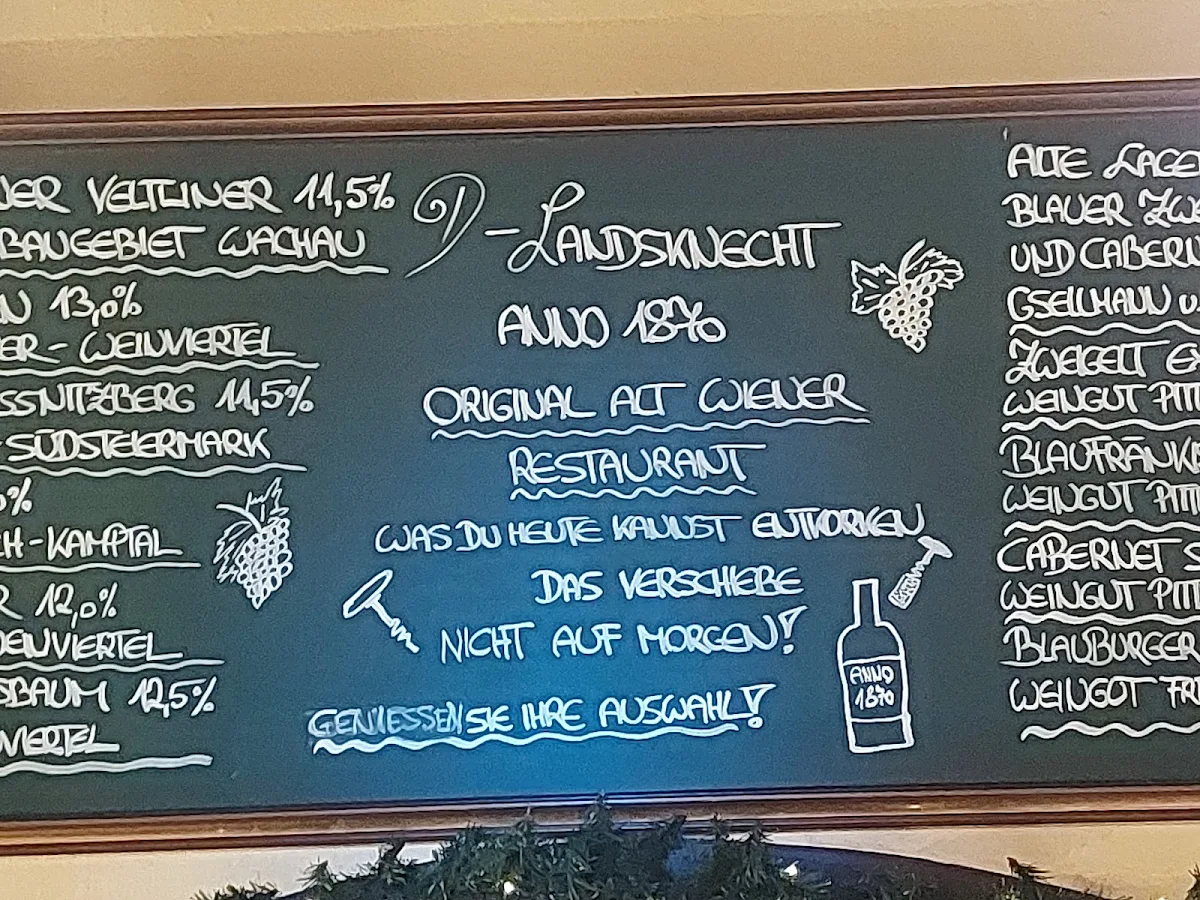 VELTLINER 11,5%
BAUGEBIET WACHAU
13,0%
WEINVIERTEL
11,5%
SÜDSTEIERMARK
KAMPTAL
12,0%
WEINVIERTEL
12,5%
D-LANDSKNECHT
ANNO 1870
ORIGINAL ALT WIENER
RESTAURANT
WAS DU HEUTE KANNST ENTKORKEN
DAS VERSCHIEBE
NICHT AUF MORGEN!
GENIESSEN SIE IHRE AUSWAHL!
ANNO
1870
ALTE LAGE
BLAUER ZWE
UND CABERN
GSELLMANN U.
ZWEIGELT
WEINGUT PITT
BLAUFRÄNKIS
WEINGUT PITT
CABERNET S
WEINGUT PITT
BLAUBURGER
WEINGUT